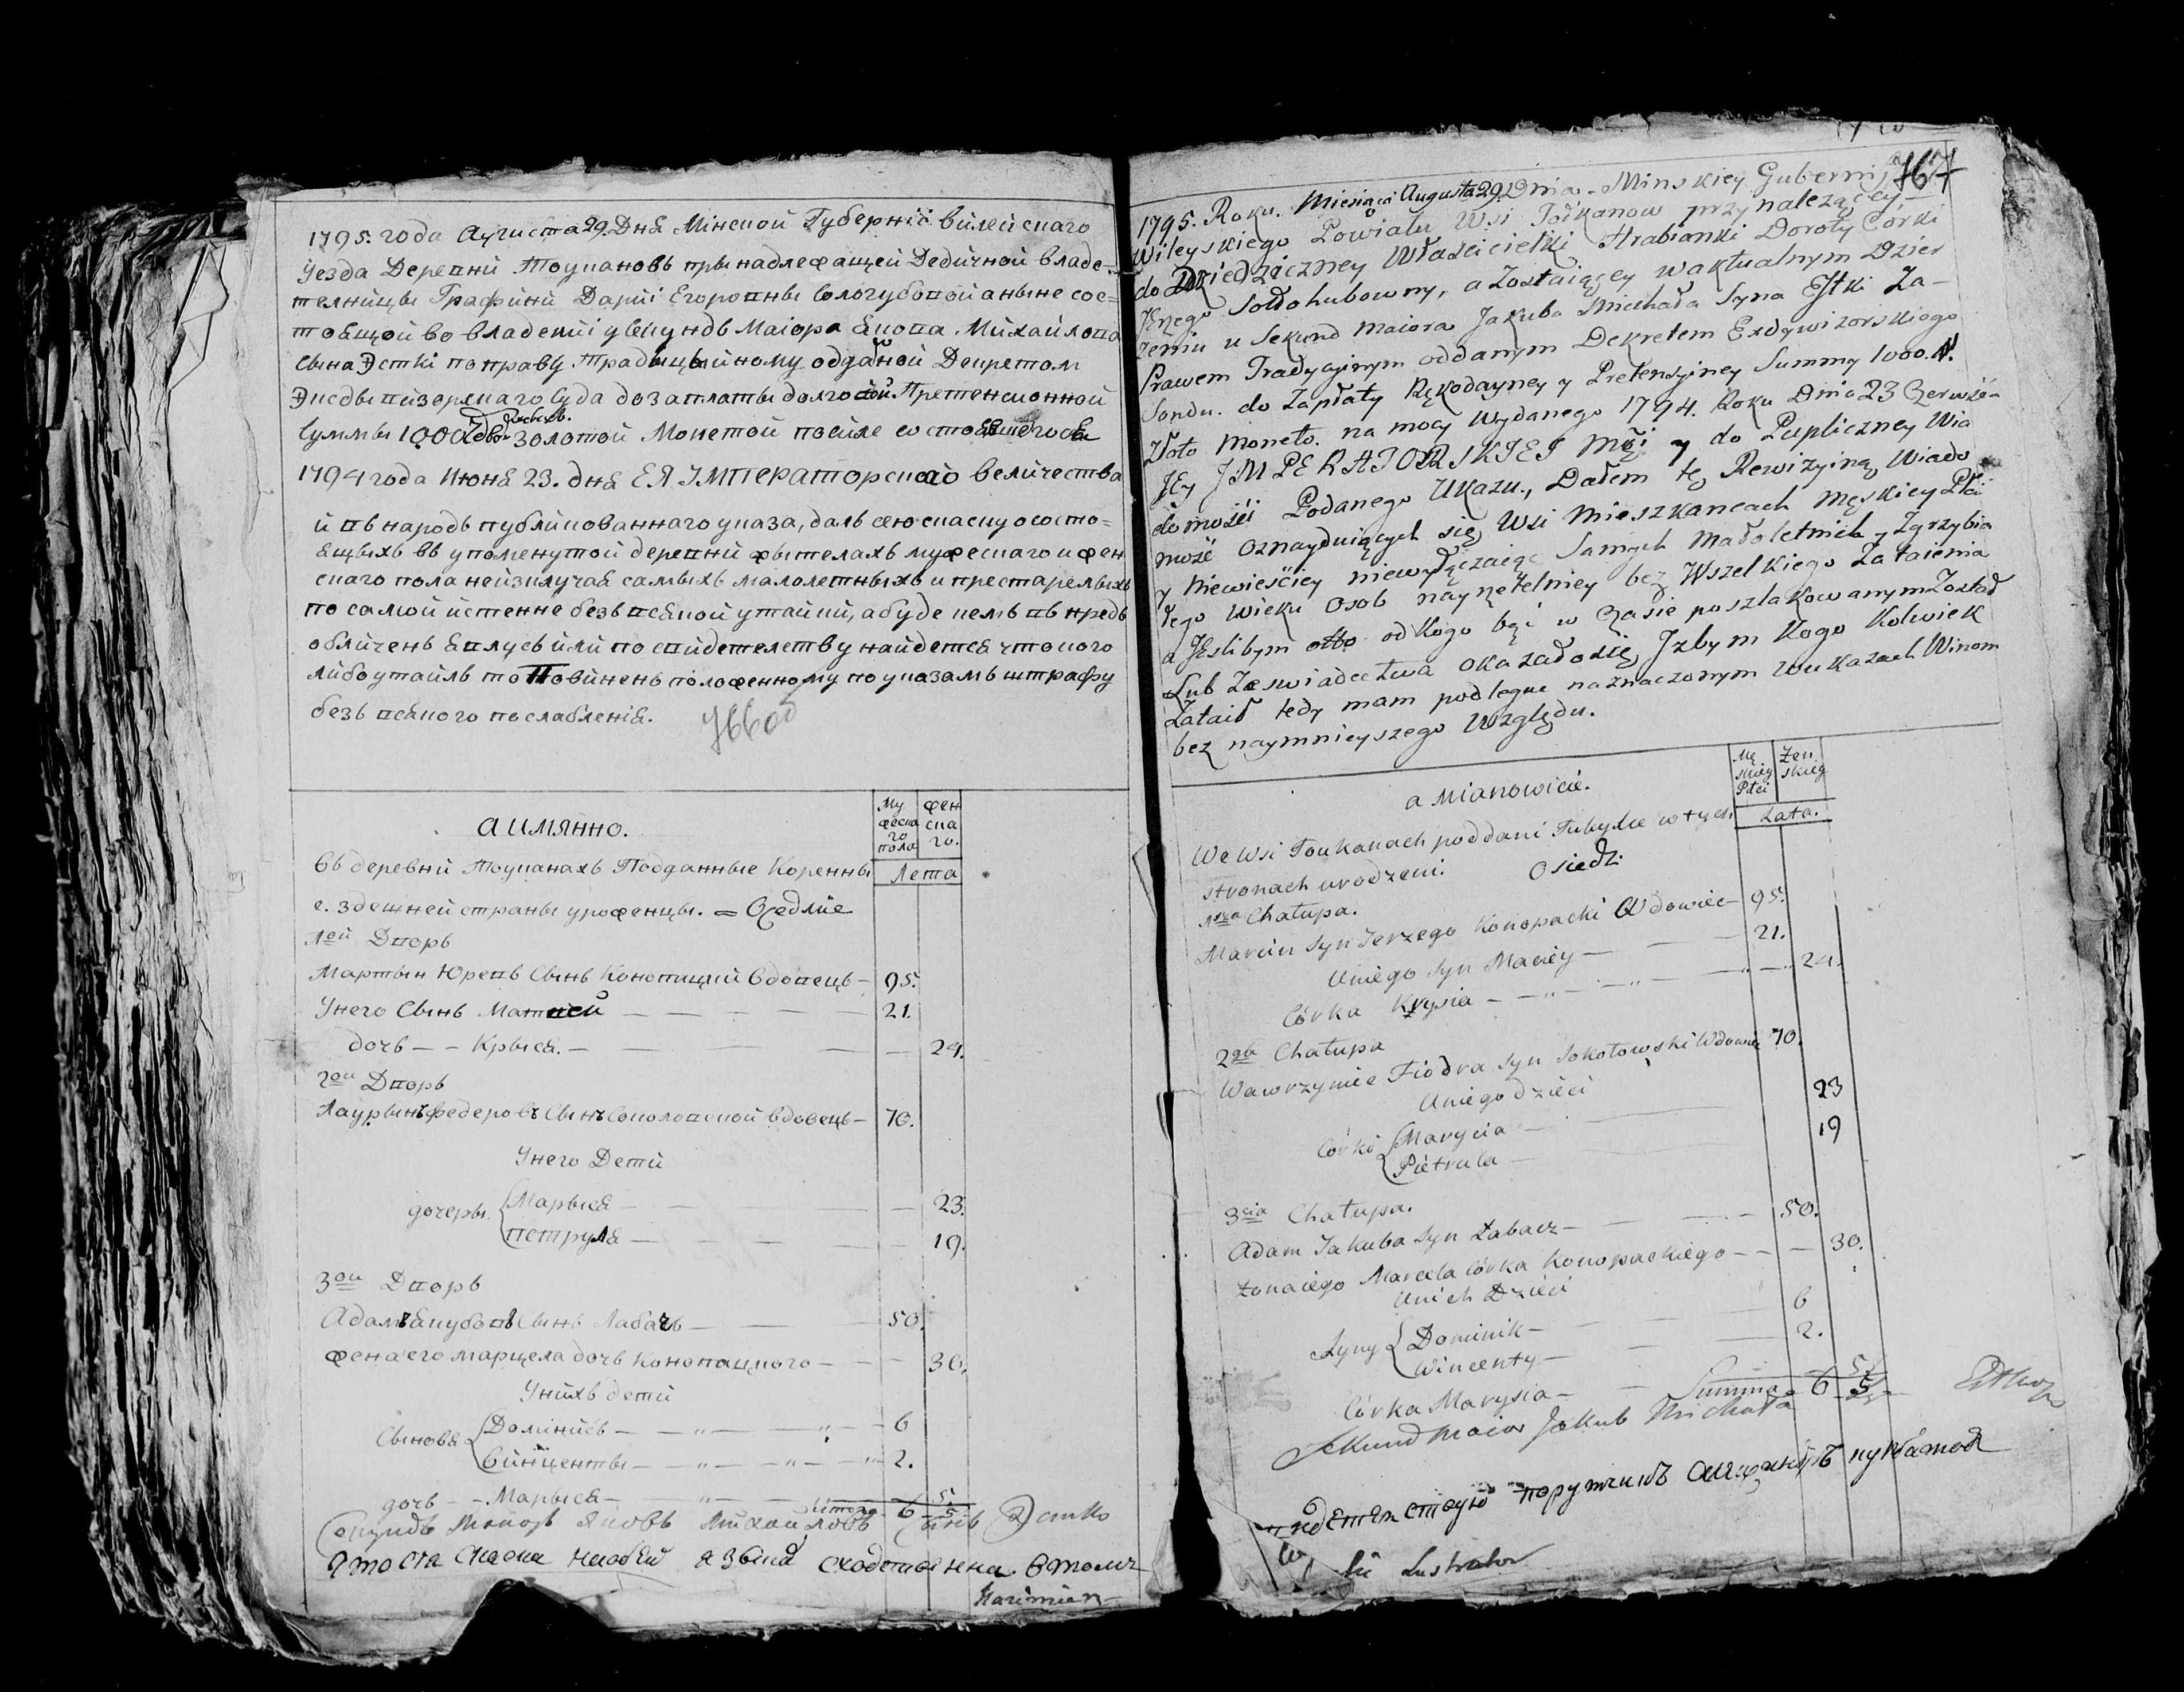 1795. года Аугуста 29. Дня Мінской Губерніи Вилейскаго
Уезда Деревни Тоукановъ принадлежащей Дедичной Владе-
телницы Графини Дарьи Егоровны Сологубовой а ныне сос=
тоящой во владении у Секундъ Маіора Якова Михайлова
сына Эсткі по праву Традыцыйному одданой Декретом
Эксдывизорскаго Суда до заплаты долговой Претенсионной
Суммы 1000 золотой Монетой после состоявшегося
1794 года Июня 23. дня ЕЯ ІМПЕРАТОРСКАГО Величества
и въ народъ публикованнаго указа, далъ сею скаску о состо=
ящыхъ въ упоменутой деревни жытелахъ мужескаго и жен
скаго пола неизключая самыхъ малолетныхъ и престарелыхъ
по самой истенне безъ всякой утайки, а буде кемъ въ предъ
обличенъ явлусь или по свидетелству найдетса что кого
либо утаилъ то Повиненъ положенному по указамъ штрафу
безъ всякого послабленія.
а имянно.
Му
жеска
го
пола
жен
ска
го.
Лета
Въ деревни Тоуканахъ Подданные Коренны
е. здешней страны уроженцы. = Оседлие
1ой Дворъ
Мартын Юревъ Сынъ Конопацкій Вдовецъ — 95.
Унего Сынъ Матвей — 21.
дочь — Крыся. — 24.
2ои Дворъ
Лаурынъ Федеровъ Сынъ Соколовской вдовецъ — 70.
Унего Дети
дочеры. Марыся — 23.
Петруля — 19.
3ои Дворъ
Адамъ Якубовъ Сынъ Лабачъ — 50.
жена его Марцела дочь Конопацкого — 30.
Унихъ дети
Сыновя Доміникъ — 6
Винценты — 2.
дочь — Марыся — 5.
Итого 6 5
Секундъ Маіоръ Яковъ Михайловъ Сынъ Эстко
Что ста скаска
Kazimierz
167
1795. Roku. Miesiąca Augusta 29 Dnia. Minskiey Gubernij
Wileyskiego Powiatu Wsi Tołkanow przynalezącey
do Dziedziczney Właścicielki Hrabianki Doroty Corki
Jerzego Sołłohubowny, a Zostaiącey w aktualnym Dzier
zeniu u Sekund Maiora Jakuba Michała Syna Estki Za-
Prawem Tradycyinym oddanym Dekretem Exdywizorskiego
Sondu. do Zapłaty Rękodayney y Pretensyiney Summy 1000.
Złoto moneto. na mocy wydanego 1794. Roku Dnia 23 Czerwca
JEy IMPERATORSKIEI Mći y do Publiczney Wia
domości Podanego Ukazu., Dałem tę Rewizyiną Wiado
mość oznayduiących się Wsi Mieszkancach męskiey Płci
y Niewieściey niewyłączaiąc Samych Małoletnich y Zgrzybia
łego wieku Osob nayrzetelniey bez Wszelkiego Zataienia
a Jeslibym od kogo bąć w czasie poszlakowanym Został
Lub Ze swiadectwa okazało się Jzbym Kogo Kolwiek
Zataił tedy mam podlegac naznaczonym w ukazach Winom
bez naymnieyszego Względu.
a mianowicie.
Mę
skiey
Płci
Żen
skiey
Lata.
We Wsi Toukanach poddani Tubylce w tych
stronach urodzeni. Osiedli
1sza Chałupa.
Marcin Syn Jerzego Konopacki Wdowiec — 95.
Uniego Syn Maciey — 21.
Córka Krysia — 24.
2ga Chałupa
Wawrzyniec Fiodra Syn Sokołowski Wdowiec 70.
Uniego dzieci
Córki Marysia — 23
Pietrula — 19
3cia Chałupa.
Adam Jakuba Syn Łabacz — 50.
Żona iego Marcela Córka Konopackiego — 30.
Unich Dzieci
Syny Dominik — 6
Wincenty — 2.
Córka Marysia — 5
Summa — 6 5
Sekund Maior Jakub Michała Estko
Lustrator